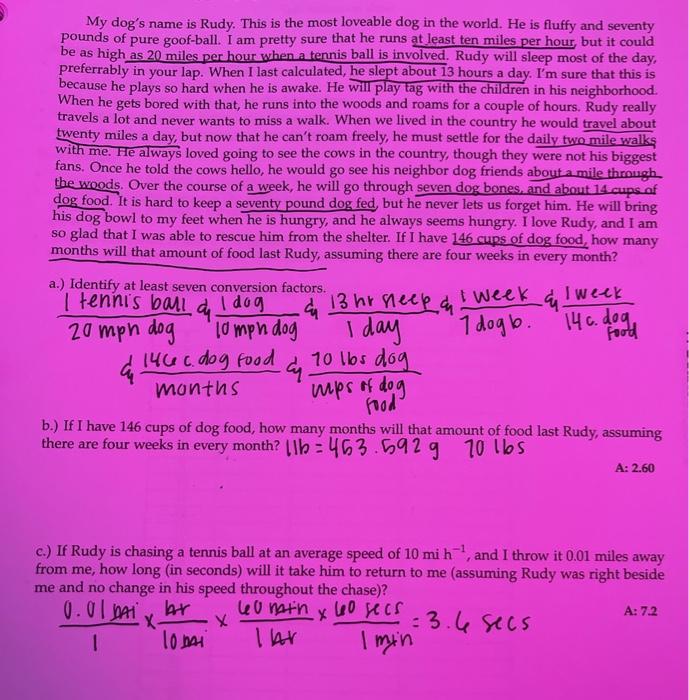 My dog's name is Rudy. This is the most loveable dog in the world. He is fluffy and seventy
pounds of pure goof-ball. I am pretty sure that he runs at least ten miles per hour, but it could
be as high as 20 miles per hour when a tennis ball is involved. Rudy will sleep most of the day,
preferrably in your lap. When I last calculated, he slept about 13 hours a day. I'm sure that this is
because he plays so hard when he is awake. He will play tag with the children in his neighborhood.
When he gets bored with that, he runs into the woods and roams for a couple of hours. Rudy really
travels a lot and never wants to miss a walk. When we lived in the country he would travel about
twenty miles a day, but now that he can't roam freely, he must settle for the daily two mile walks
with me. He always loved going to see the cows in the country, though they were not his biggest
fans. Once he told the cows hello, he would go see his neighbor dog friends about a mile through
the woods. Over the course of a week, he will go through seven dog bones, and about 14 cups of
dog food. It is hard to keep a seventy pound dog fed, but he never lets us forget him. He will bring
his dog bowl to my feet when he is hungry, and he always seems hungry. I love Rudy, and I am
so glad that I was able to rescue him from the shelter. If I have 146 cups of dog food, how many
months will that amount of food last Rudy, assuming there are four weeks in every month?
a.) Identify at least seven conversion factors.
1 tennis ball & 1 dog & 13 hr sleep & 1 week & 1 week
20 mph dog 10 mph dog 1 day 7 dog b. 14 c. dog food
& 146 c. dog food & 70 lbs dog
months cups of dog food
b.) If I have 146 cups of dog food, how many months will that amount of food last Rudy, assuming
there are four weeks in every month? 1 lb = 453.592 g 70 lbs
A: 2.60
c.) If Rudy is chasing a tennis ball at an average speed of 10 mi h⁻¹, and I throw it 0.01 miles away
from me, how long (in seconds) will it take him to return to me (assuming Rudy was right beside
me and no change in his speed throughout the chase)?
A: 7.2
0.01 mi x hr x 60 min x 60 secs = 3.6 secs
1 10 mi 1 hr 1 min